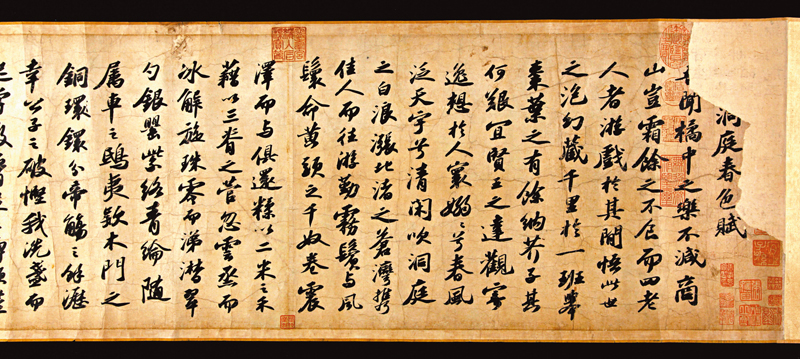 洞庭春色賦
聞橘中之樂不減商
山豈霜餘之不食而四老
人者游戲於其間悟此世
之泡幻藏千里於一班舉
棗葉之有餘納芥子其
何艱宜賢王之達觀寄
逸想於人寰嫋〻兮春風
泛天宇兮清閑吹洞庭
之白浪漲北渚之蒼灣携
佳人而往游勤霧鬢與風
鬟命黃頭之千奴卷震
澤而與俱還糅以二米之禾
藉以三脊之菅忽雲烝而
冰解旋珠零而涕潸翠
勺銀罌紫絡青綸隨
屬車之鴟夷款木門之
銅環鐶分帝觴之餘瀝
幸公子之破慳我洗盞而